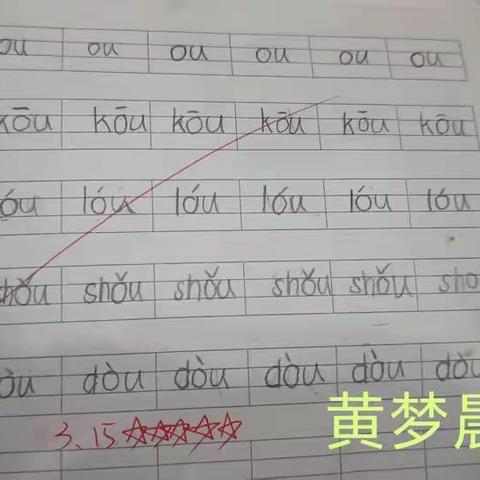 ou ou ou ou ou ou
kōu kōu kōu kōu kōu kōu
óu lóu lóu lóu lóu lóu
shǒu shǒu shǒu shǒu shǒu sho
òu dòu dòu dòu dòu dòu
3.15 ☆☆☆☆☆
黄梦晨